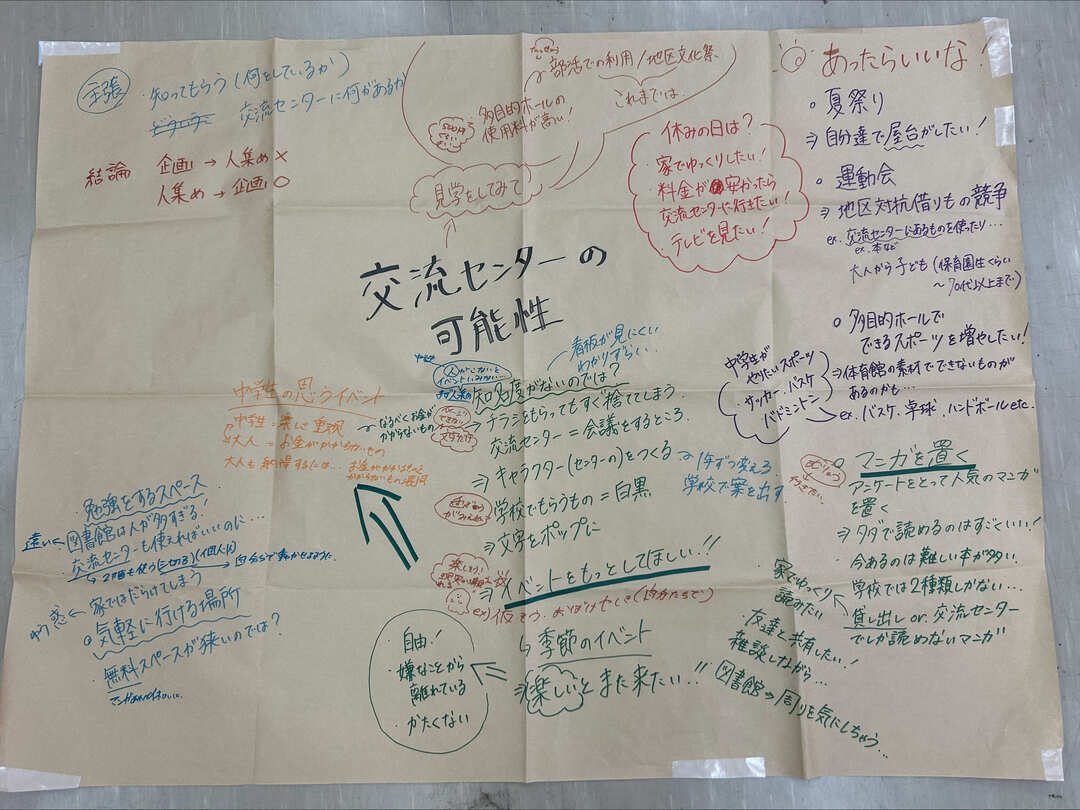 主張
・知ってもらう(何をしているか)
交流センターに何があるか
結論 企画→人集め×
人集め→企画○
部活での利用/地区文化祭
これまでは…
多目的ホールの
使用料が高い!
見学をしてみて
交流センターの
可能性
休みの日は?
・家でゆっくりしたい!
・料金が安かったら
交流センターに行きたい!
・テレビを見たい!
あったらいいな!
夏祭り
⇒自分達で屋台がしたい!
運動会
⇒地区対抗借りもの競争
ex. 交流センターにあるものを使ったり…
ex. 本など
大人から子ども(保育園生くらい
～70代以上まで)
多目的ホールで
できるスポーツを増やしたい!
⇒体育館の素材でできないものが
あるのかも…
ex. バスケ、卓球、ハンドボールetc.
中学生が
やりたいスポーツ
・サッカー・バスケ
・バドミントン
看板が見にくい
わかりずらい
人がこないと
イベントいみない…
知名度がないのでは?
⇒チラシをもらってもすぐ捨ててしまう
交流センター=会議をするところ
⇒キャラクター(センターの)をつくる
→1年ずつ変える
学校で案を出す
学校でもらうもの=白黒
⇒文字をポップに
⇒イベントをもっとしてほしい!!
↳季節のイベント
⇒楽しいとまた来たい!!
・自由!
・嫌なことから
離れている
・かたくない
中学生の思うイベント
中学生=楽しさ重視
大人=お金がかからないもの
なるべくお金が
かからないもの
勉強をするスペース
遠い<図書館は人が多すぎる!
交流センターも使えればいいのに…
誘惑
家ではだらけてしまう
気軽に行ける場所
・無料スペースが狭いのでは?
マンガを置く
アンケートをとって人気のマンガ
を置く
⇒タダで読めるのはすごくいい!
今あるのは難しい本が多い
学校では2種類しかない…
貸し出し or 交流センター
でしか読めないマンガ
家でゆっくり
読みたい
・友達と共有したい!
雑談しながら…
図書館⇒周りを気にしちゃう…